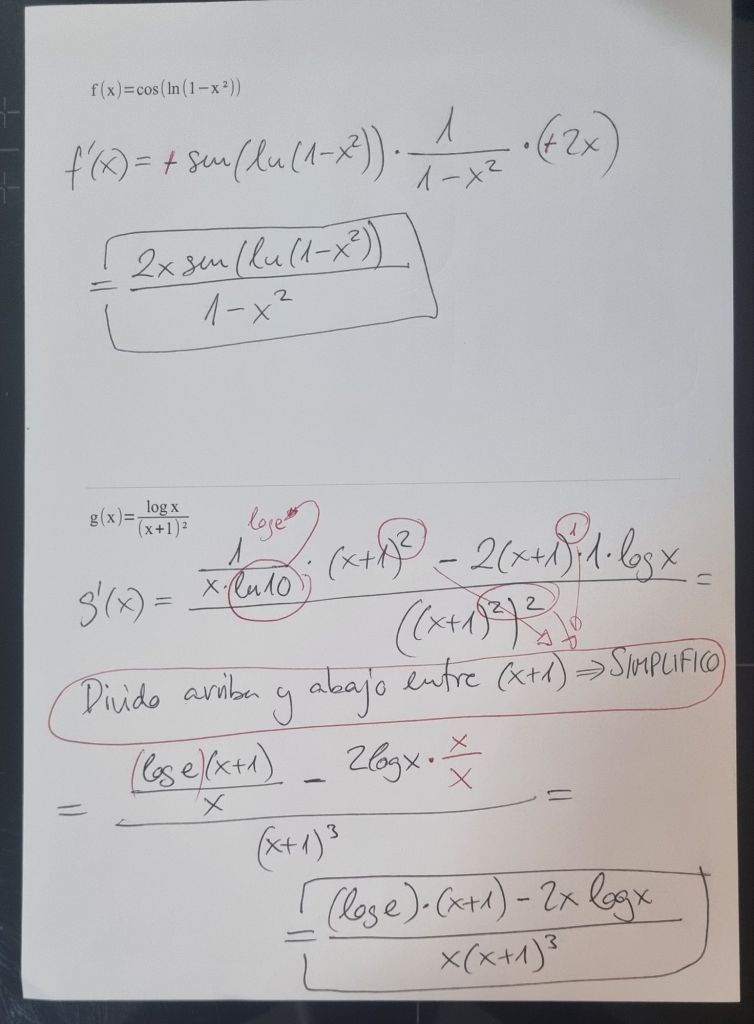 f(x)=cos(ln(1−x²))
f'(x) = + sen(ln(1−x²)) · 1/(1−x²) · (+2x)
= 2x sen(ln(1−x²))/(1−x²)
g(x)=log x/(x+1)²
log e
g'(x) = (1/(x·ln10) · (x+1)² − 2(x+1)¹·1·log x)/((x+1)²)² =
Divido arriba y abajo entre (x+1) ⇒ SIMPLIFICO
= ((log e)(x+1)/x − 2log x · x/x)/(x+1)³ =
= ((log e)·(x+1) − 2x log x)/(x(x+1)³)